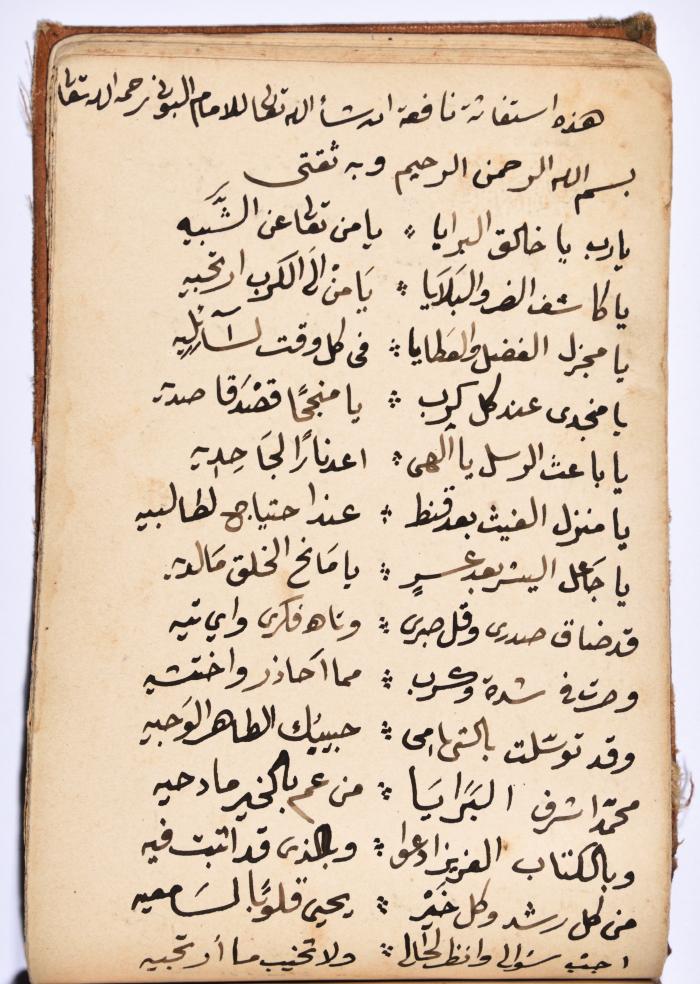 هذه استغاثة نافعة ان شأ الله تعالى للامام البوني رحمه الله تعالى
بسم الله الرحمن الرحيم وبه ثقتى
يارب يا خالق البرايا ؞ يا من تعالى عن الشَّبَيه
يا كاشف الضر والبَلَايا ؞ يَا مَنْ الَى الكَرب ارتجيه
يا مجزل الفضل والعطايا ؞ فى كل وقت لسآئِلِيه
يا منجدى عند كل كرب ؞ يا منجحًا قصْد قاصديه
يا باعث الرسل يا الهى ؞ اعد نارًا لجَاحِديه
يا منزل الغيث بعد قنط ؞ عند احتياج لطالبيه
يا جَاعل اليسْر بعد عسرٍ ؞ يا مَانح الخلق مَالديه
قد ضاق صدرى وقل صبرى ؞ وتاه فكرى واى تيه
وصرت فى شدة وكرب ؞ مما احَاذر واختشيه
وقد توسّلت بالتهامى ؞ حبيبك الطاهر الوَجيه
محمّد اشرف البَرَايَا ؞ من عم بالخير مادحيه
وبالكتاب العزيز ادعوا ؞ وبالذى قد اتيت فيه
من كل رشد وكل خَيْر ؞ يحيى قلوبًا لسَامعيه
اجب سؤالى وانظر لحالى ؞ ولا تخيب ما أرتجيه